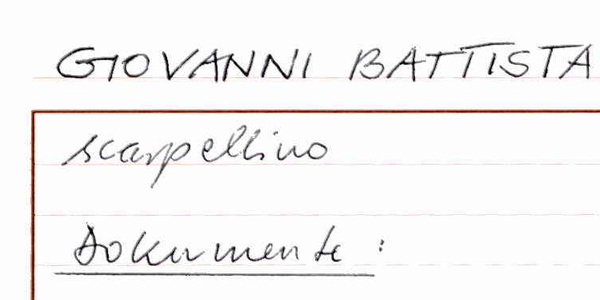 GIOVANNI BATTISTA
scarpellino
Dokumente: